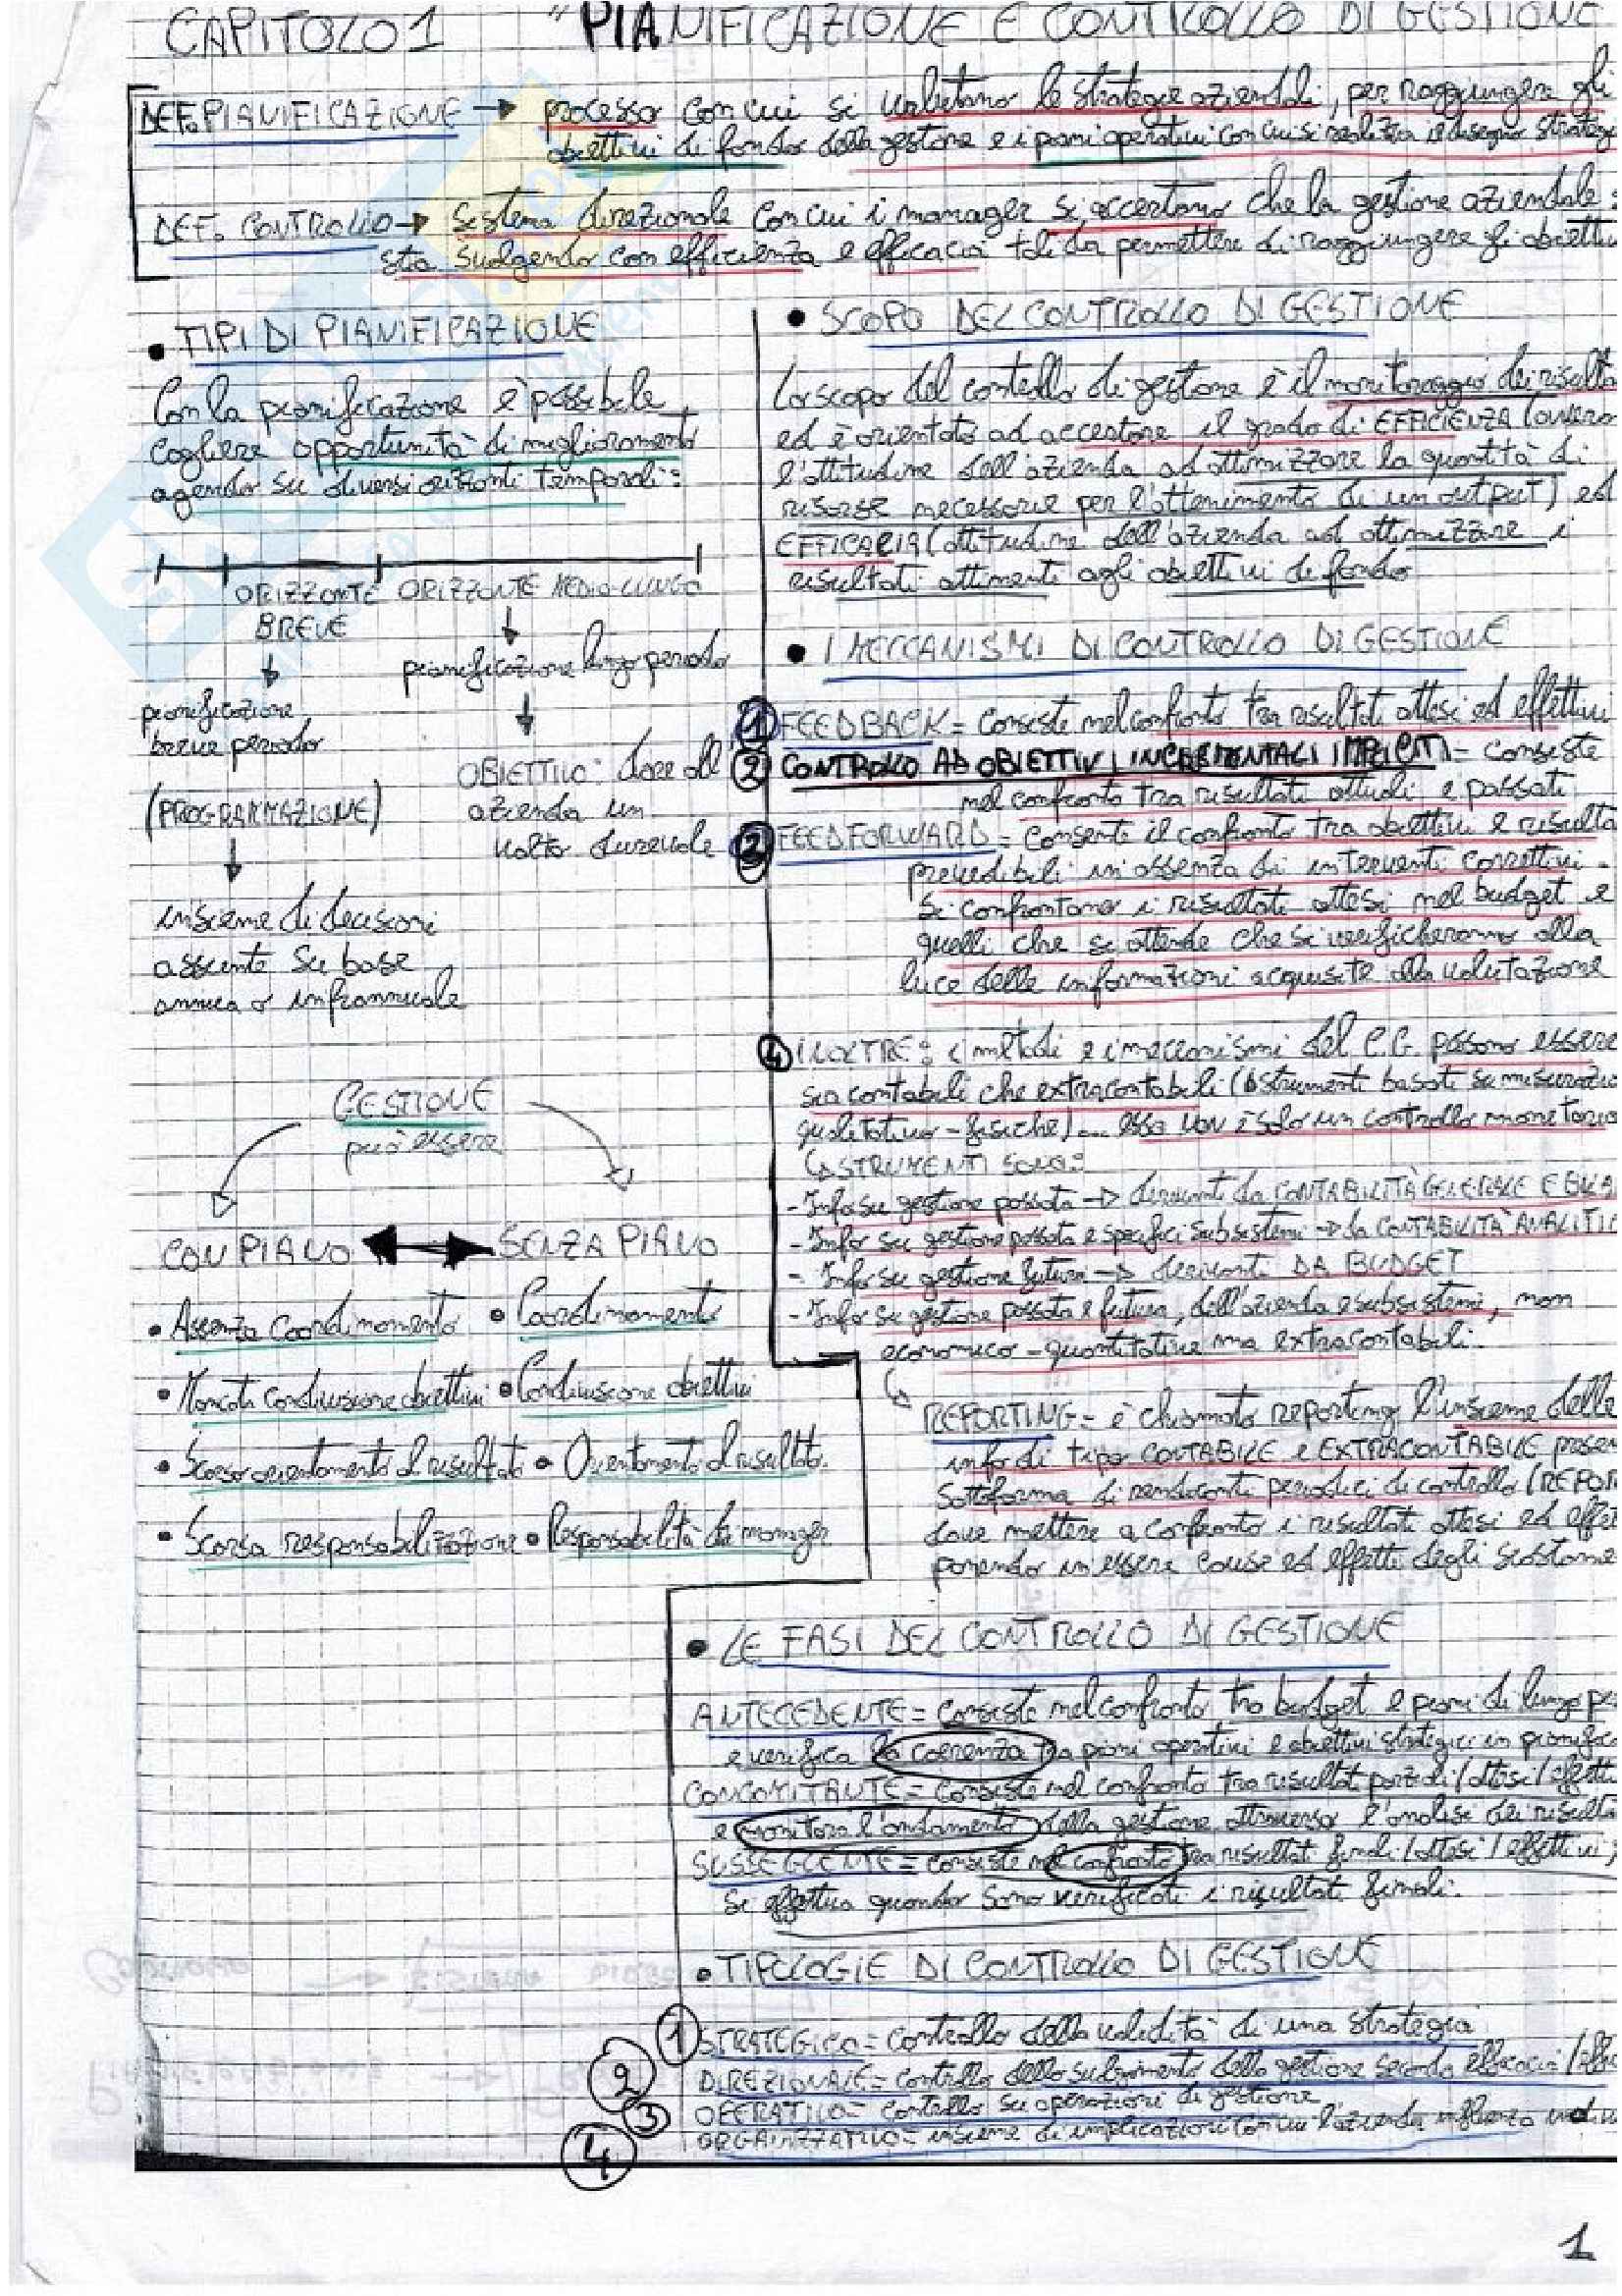 CAPITOLO 1 "PIANIFICAZIONE E CONTROLLO DI GESTIONE
DEF. PIANIFICAZIONE → processo con cui si valutano le strategie aziendali, per raggiungere gli
obiettivi di fondo della gestione e i piani operativi con cui si realizza il disegno strateg
DEF. CONTROLLO → Sistema direzionale con cui i manager si accertano che la gestione aziendale s
sta svolgendo con efficienza e efficacia tali da permettere di raggiungere gli obiettiv
• TIPI DI PIANIFICAZIONE
Con la pianificazione è possibile
cogliere opportunità di miglioramento
agendo su diversi orizzonti temporali:
ORIZZONTE BREVE
↓
pianificazione
breve periodo
(PROGRAMMAZIONE)
↓
insieme di decisioni
assunte su base
annua o infrannuale
ORIZZONTE MEDIO-LUNGO
↓
pianificazione lungo periodo
↓
OBIETTIVO: dare all
azienda un
volto durevole
GESTIONE
può essere
CON PIANO ↔ SENZA PIANO
• Assenza Coordinamento • Coordinamento
• Mancata condivisione obiettivi • Condivisione obiettivi
• Scarso orientamento al risultato • Orientamento al risultato
• Scarsa responsabilizzazione • Responsabilità dei manager
• SCOPO DEL CONTROLLO DI GESTIONE
Lo scopo del controllo di gestione è il monitoraggio dei risulta
ed è orientato ad accertare il grado di EFFICIENZA (ovvero
l'attitudine dell'azienda ad ottimizzare la quantità di
risorse necessarie per l'ottenimento di un output) ed
EFFICACIA (attitudine dell'azienda ad ottimizzare i
risultati attinenti agli obiettivi di fondo
• I MECCANISMI DI CONTROLLO DI GESTIONE
1 FEEDBACK = Consiste nel confronto tra risultati attesi ed effettivi
2 CONTROLLO AD OBIETTIVI INCREMENTALI IMPLICITI = consiste
nel confronto tra risultati attuali e passati
FEEDFORWARD = Consente il confronto tra obiettivi e risulta
prevedibili in assenza di interventi correttivi.
Si confrontano i risultati attesi nel budget e
quelli che si attende che si verificheranno alla
luce delle informazioni acquisite alla valutazione
4 INOLTRE: i metodi e i meccanismi del C.G. possono essere
sia contabili che extracontabili (strumenti basati su misurazio
qualitativo-fisiche)... esso non è solo un controllo monetario
STRUMENTI SONO:
- Info su gestione passata → derivanti da CONTABILITÀ GENERALE E
- Infor su gestione passata e specifici subsistemi → da CONTABILITÀ ANALITIC
- Infor su gestione futura → derivanti DA BUDGET
- Infor su gestione passata e futura, dell'azienda e subsistemi, non
economico - quantitative ma extracontabili.
REPORTING = è chiamato reporting l'insieme delle
info di tipo CONTABILE e EXTRACONTABILE presen
Sottoforma di rendiconti periodici di controllo (REPOR
dove mettere a confronto i risultati attesi ed effet
ponendo in essere cause ed effetti degli scostame
• LE FASI DEL CONTROLLO DI GESTIONE
ANTECEDENTE = Consiste nel confronto tra budget e piani di lungo pe
e verifica la coerenza tra piani operativi e obiettivi strategici in pianifica
CONCOMITANTE = Consiste nel confronto tra risultati parziali (attesi/effetti
e monitora l'andamento della gestione attraverso l'analisi dei risulta
SUSSEGUENTE = consiste nel confronto tra risultati finali (attesi/effettivi),
Si effettua quando sono verificati i risultati finali.
• TIPOLOGIE DI CONTROLLO DI GESTIONE
1 STRATEGICO = Controllo della validità di una strategia
2 DIREZIONALE = controllo dello svolgimento della gestione secondo efficacia
3 OPERATIVO = controllo su operazioni di gestione
4 ORGANIZZATIVO = insieme di implicazioni con cui l'azienda influenza
1